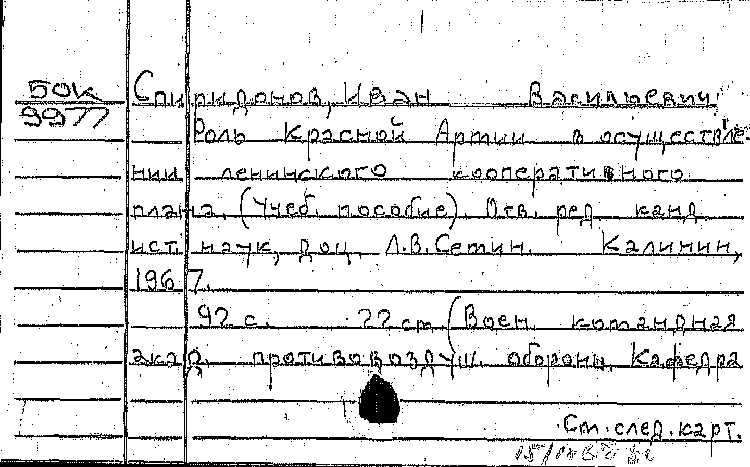 50К
9977
Спиридонов, Иван Васильевич.
Роль Красной Армии в осуществле-
нии ленинского кооперативного
плана. (Учеб. пособие). Отв. ред. канд.
ист. наук, доц. Л.В.Семин. Калинин,
1967.
92 с. 22 см. (Воен. командная
акад. противовоздуш. обороны. Кафедра
См. след. карт.